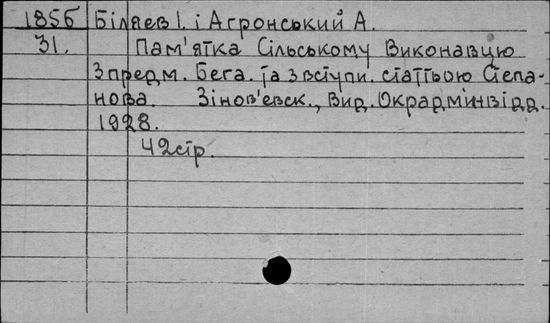 1856 Біляєв І. і Агронський А.
31. Пам'ятка Сільському Виконавцю
З предм. Бега. та з вступн. статтьою Степа-
нова. Зінов'євск., Вид. Окрадмінвідд.
1928.
42 стр.